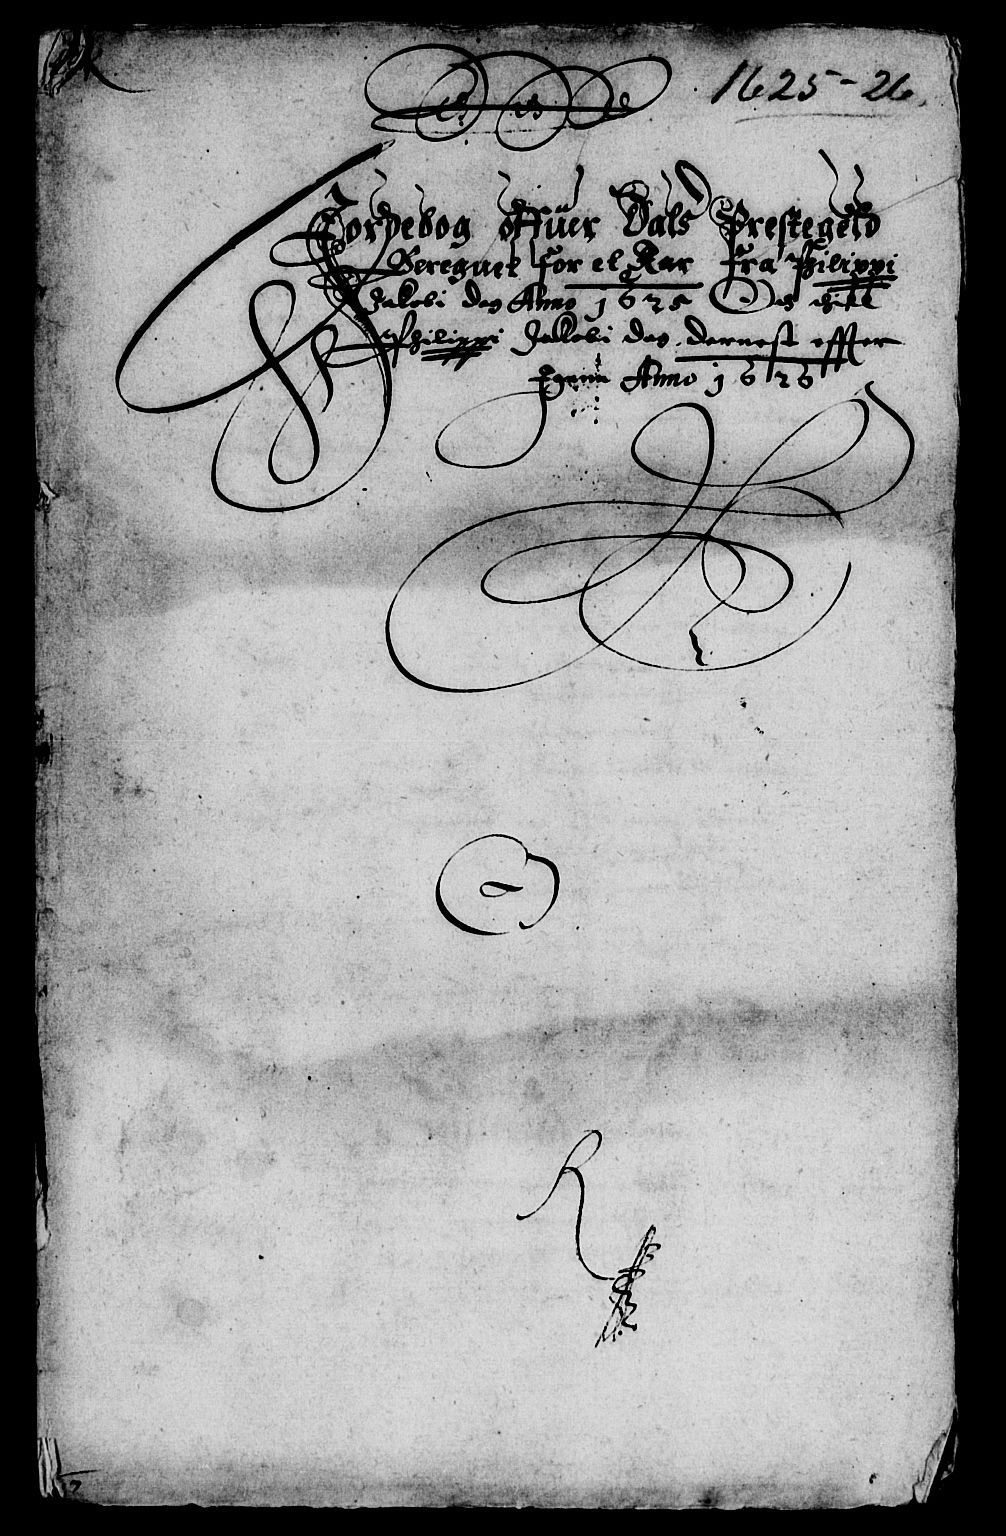 1625-26.
Jordebog offuer Dals Prestegeld
Beregnet for et Aar Fra Philippi
Jakobi dag Anno 1625 Och thill
Philippi Jakobi dag dernest effter
Anno 1626